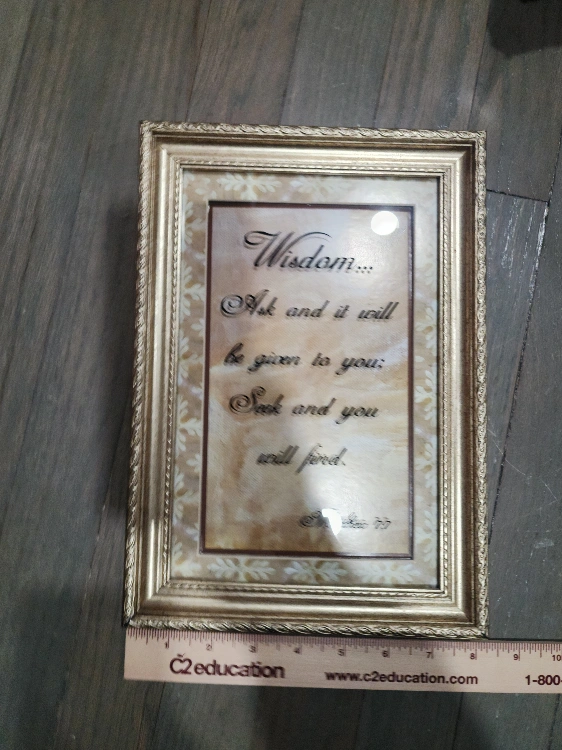 Wisdom...
Ask and it will
be given to you;
Seek and you
will find.
7:7
1 2 3 4 5 6 7 8 9 10
C2education www.c2education.com 1-800-